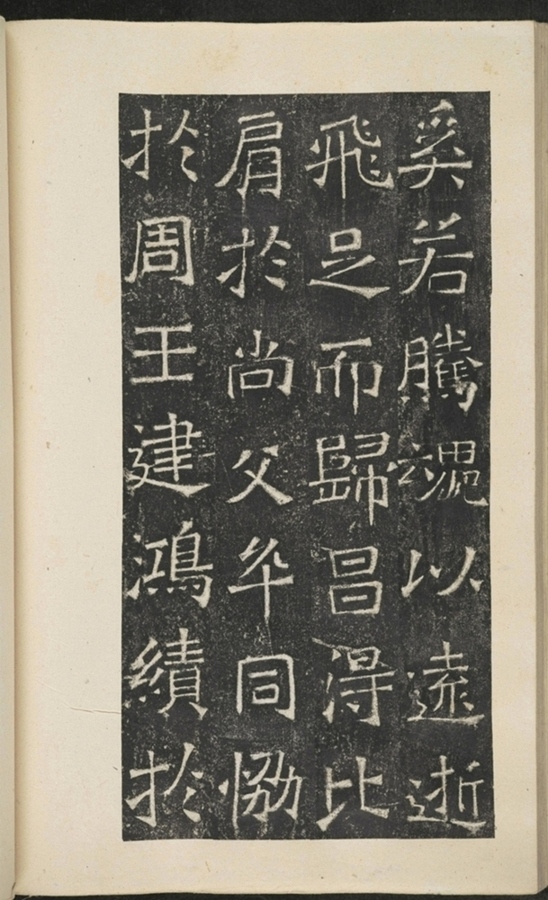 奚若騰魂以遠逝
飛足而歸昌淂比
肩於尚父卒同恊
於周王建鴻績於